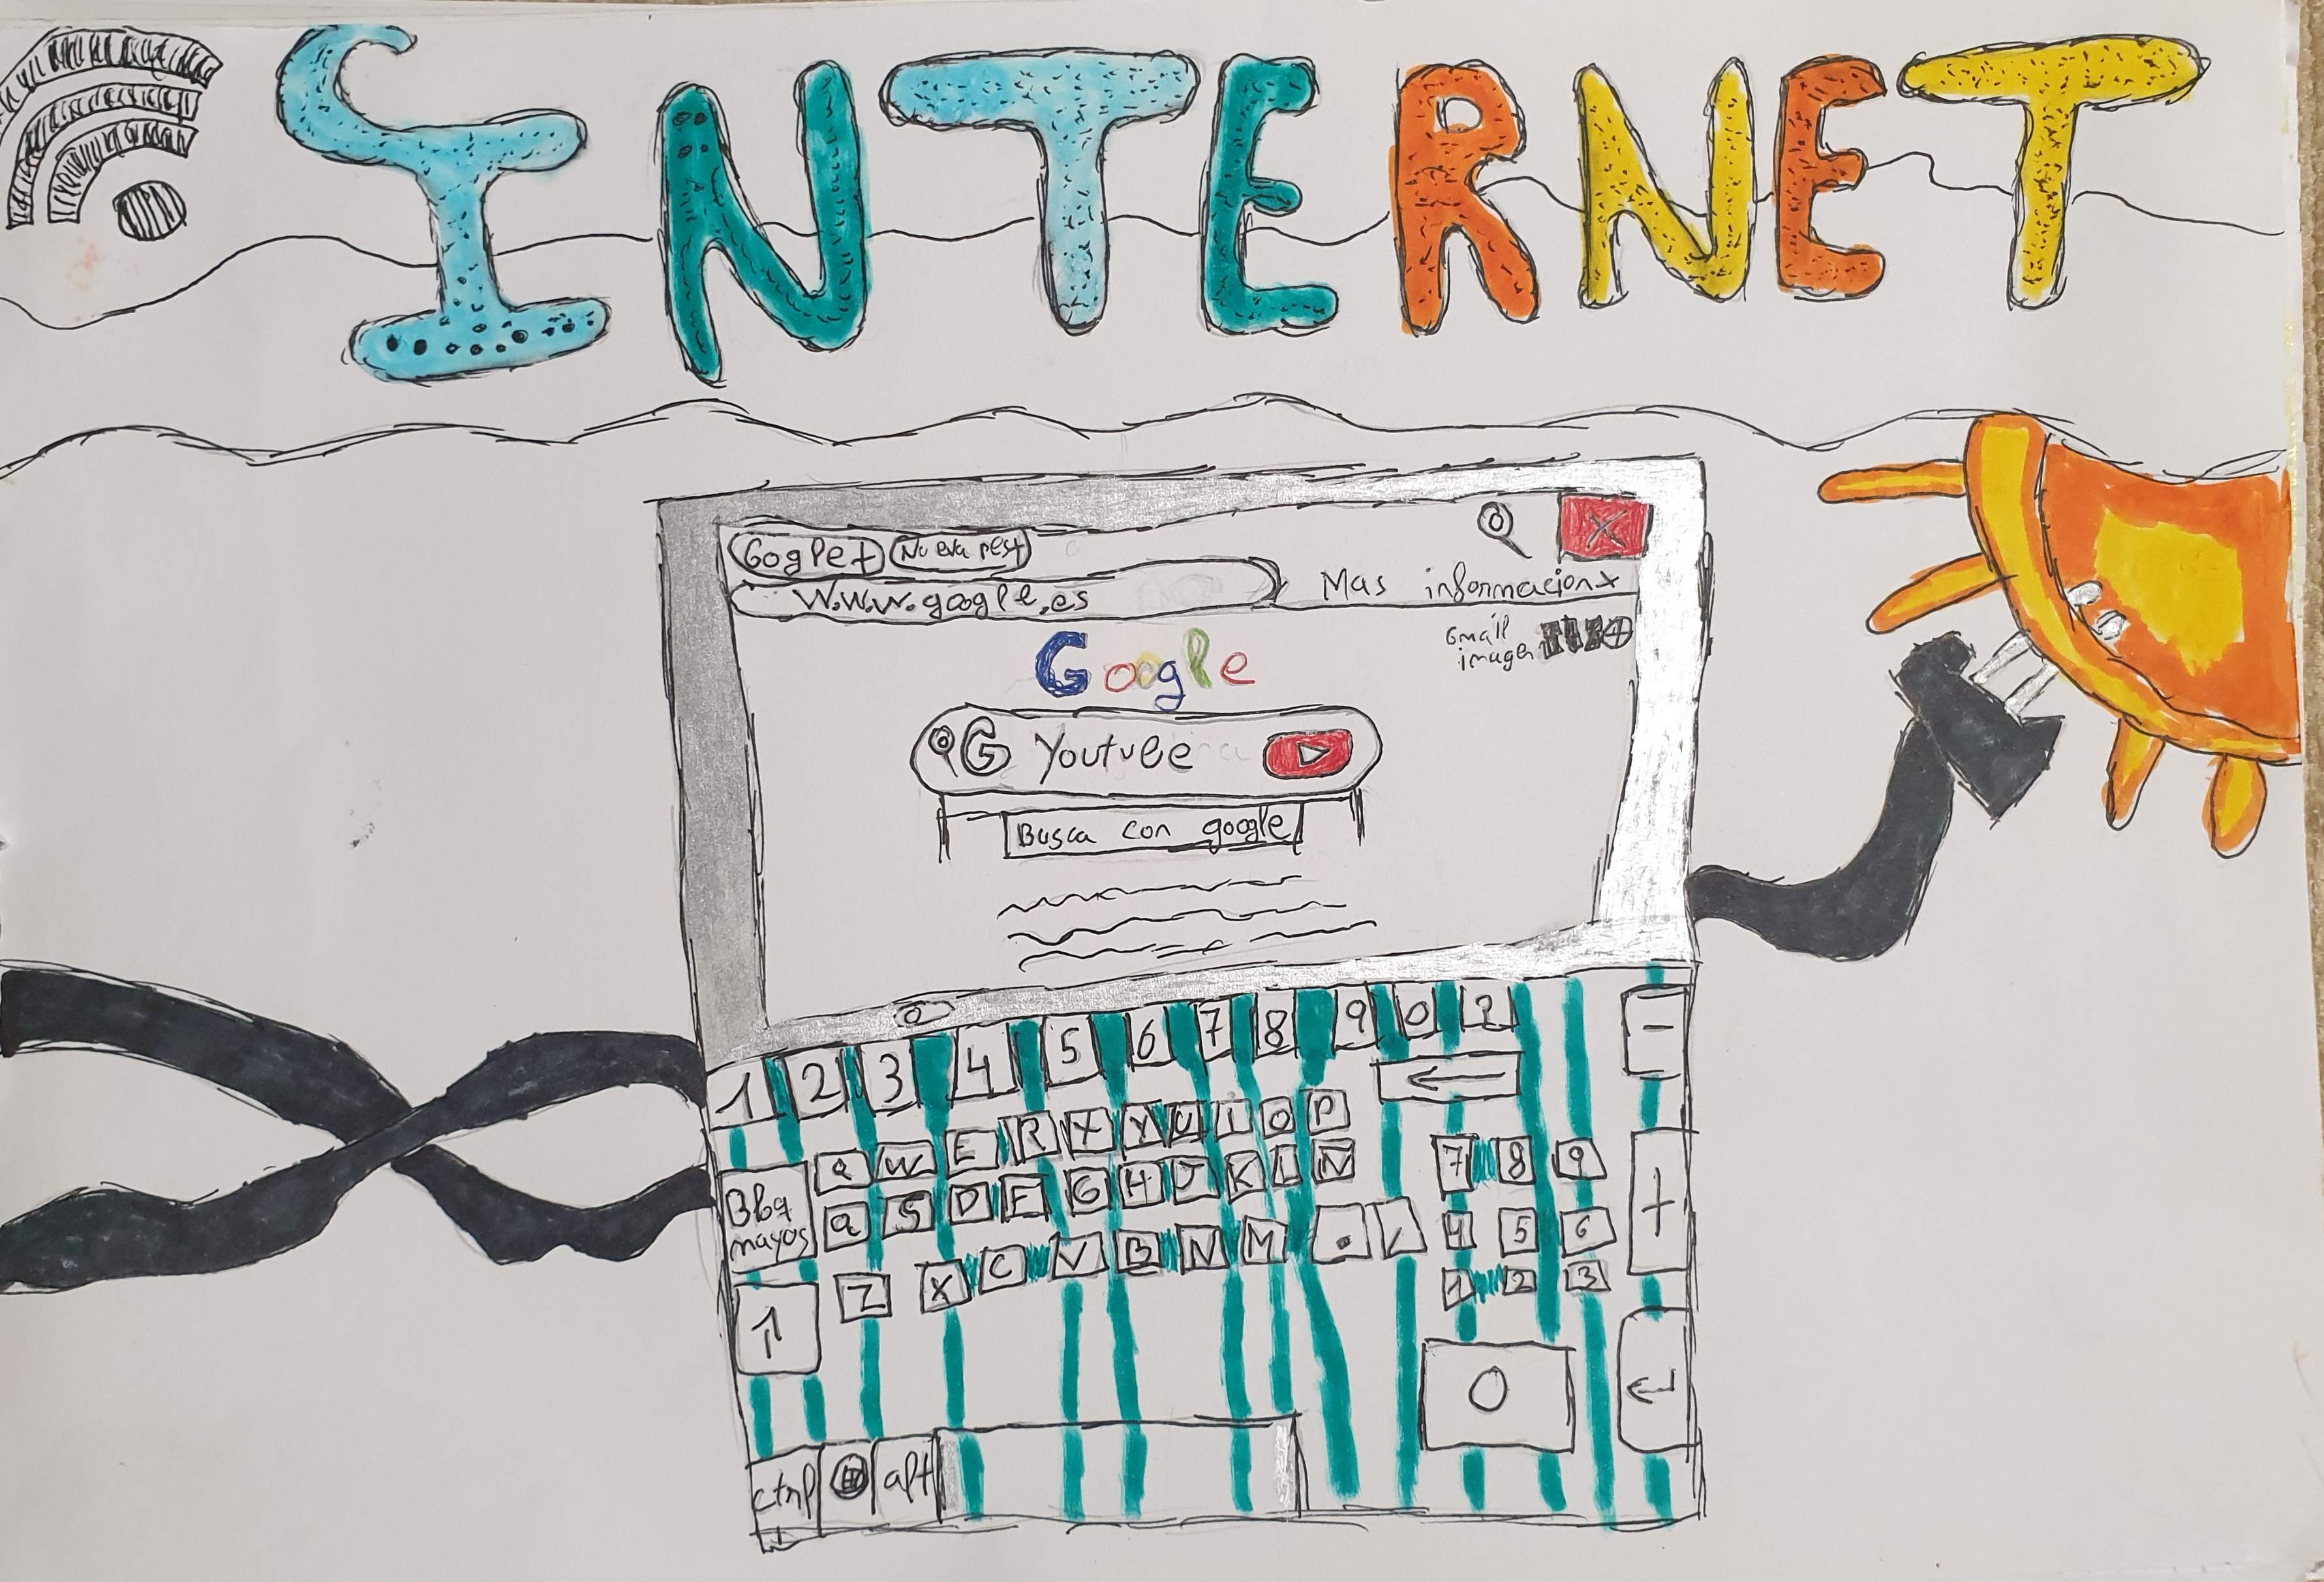 INTERNET
Gogle+ Nueva pest
W.W.W.google.es
Mas informacion+
Gmail
imagen
Google
G Youtube
Busca con google
1 2 3 4 5 6 7 8 9 0 ? -
←
Q W E R Y U I O P
7 8 9
Bloq
mayos
a S D F G H J K L N
+
4 5 6
Z X C V B N M . ,
1 2 3
↑
0
↵
ctrl alt